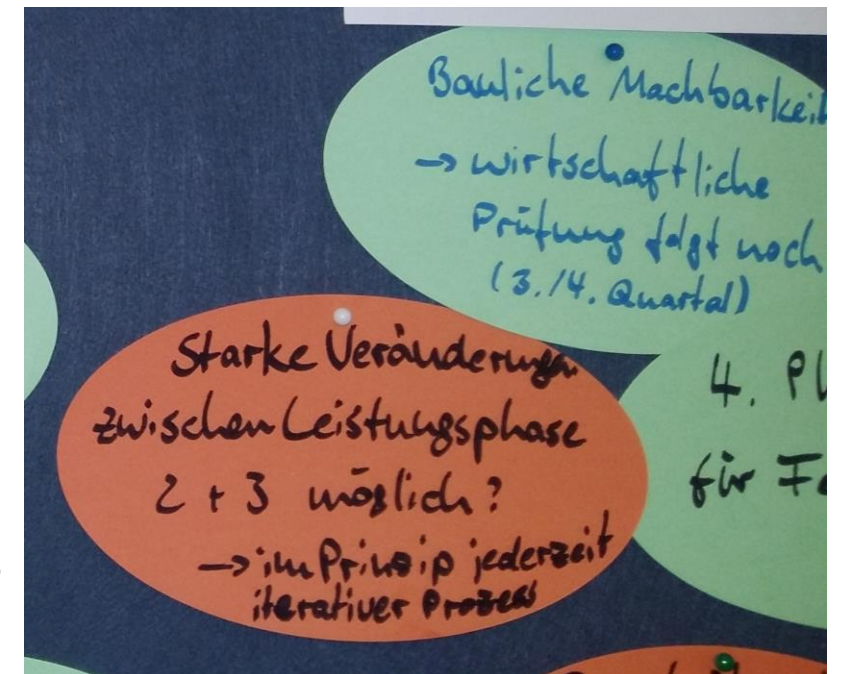 Bauliche Machbarkeit
→ wirtschaftliche
Prüfung folgt noch
(3./4. Quartal)
Starke Veränderungen
zwischen Leistungsphase
2 + 3 möglich?
→ im Prinzip jederzeit
iterativer Prozess
4. Pl
für Fo